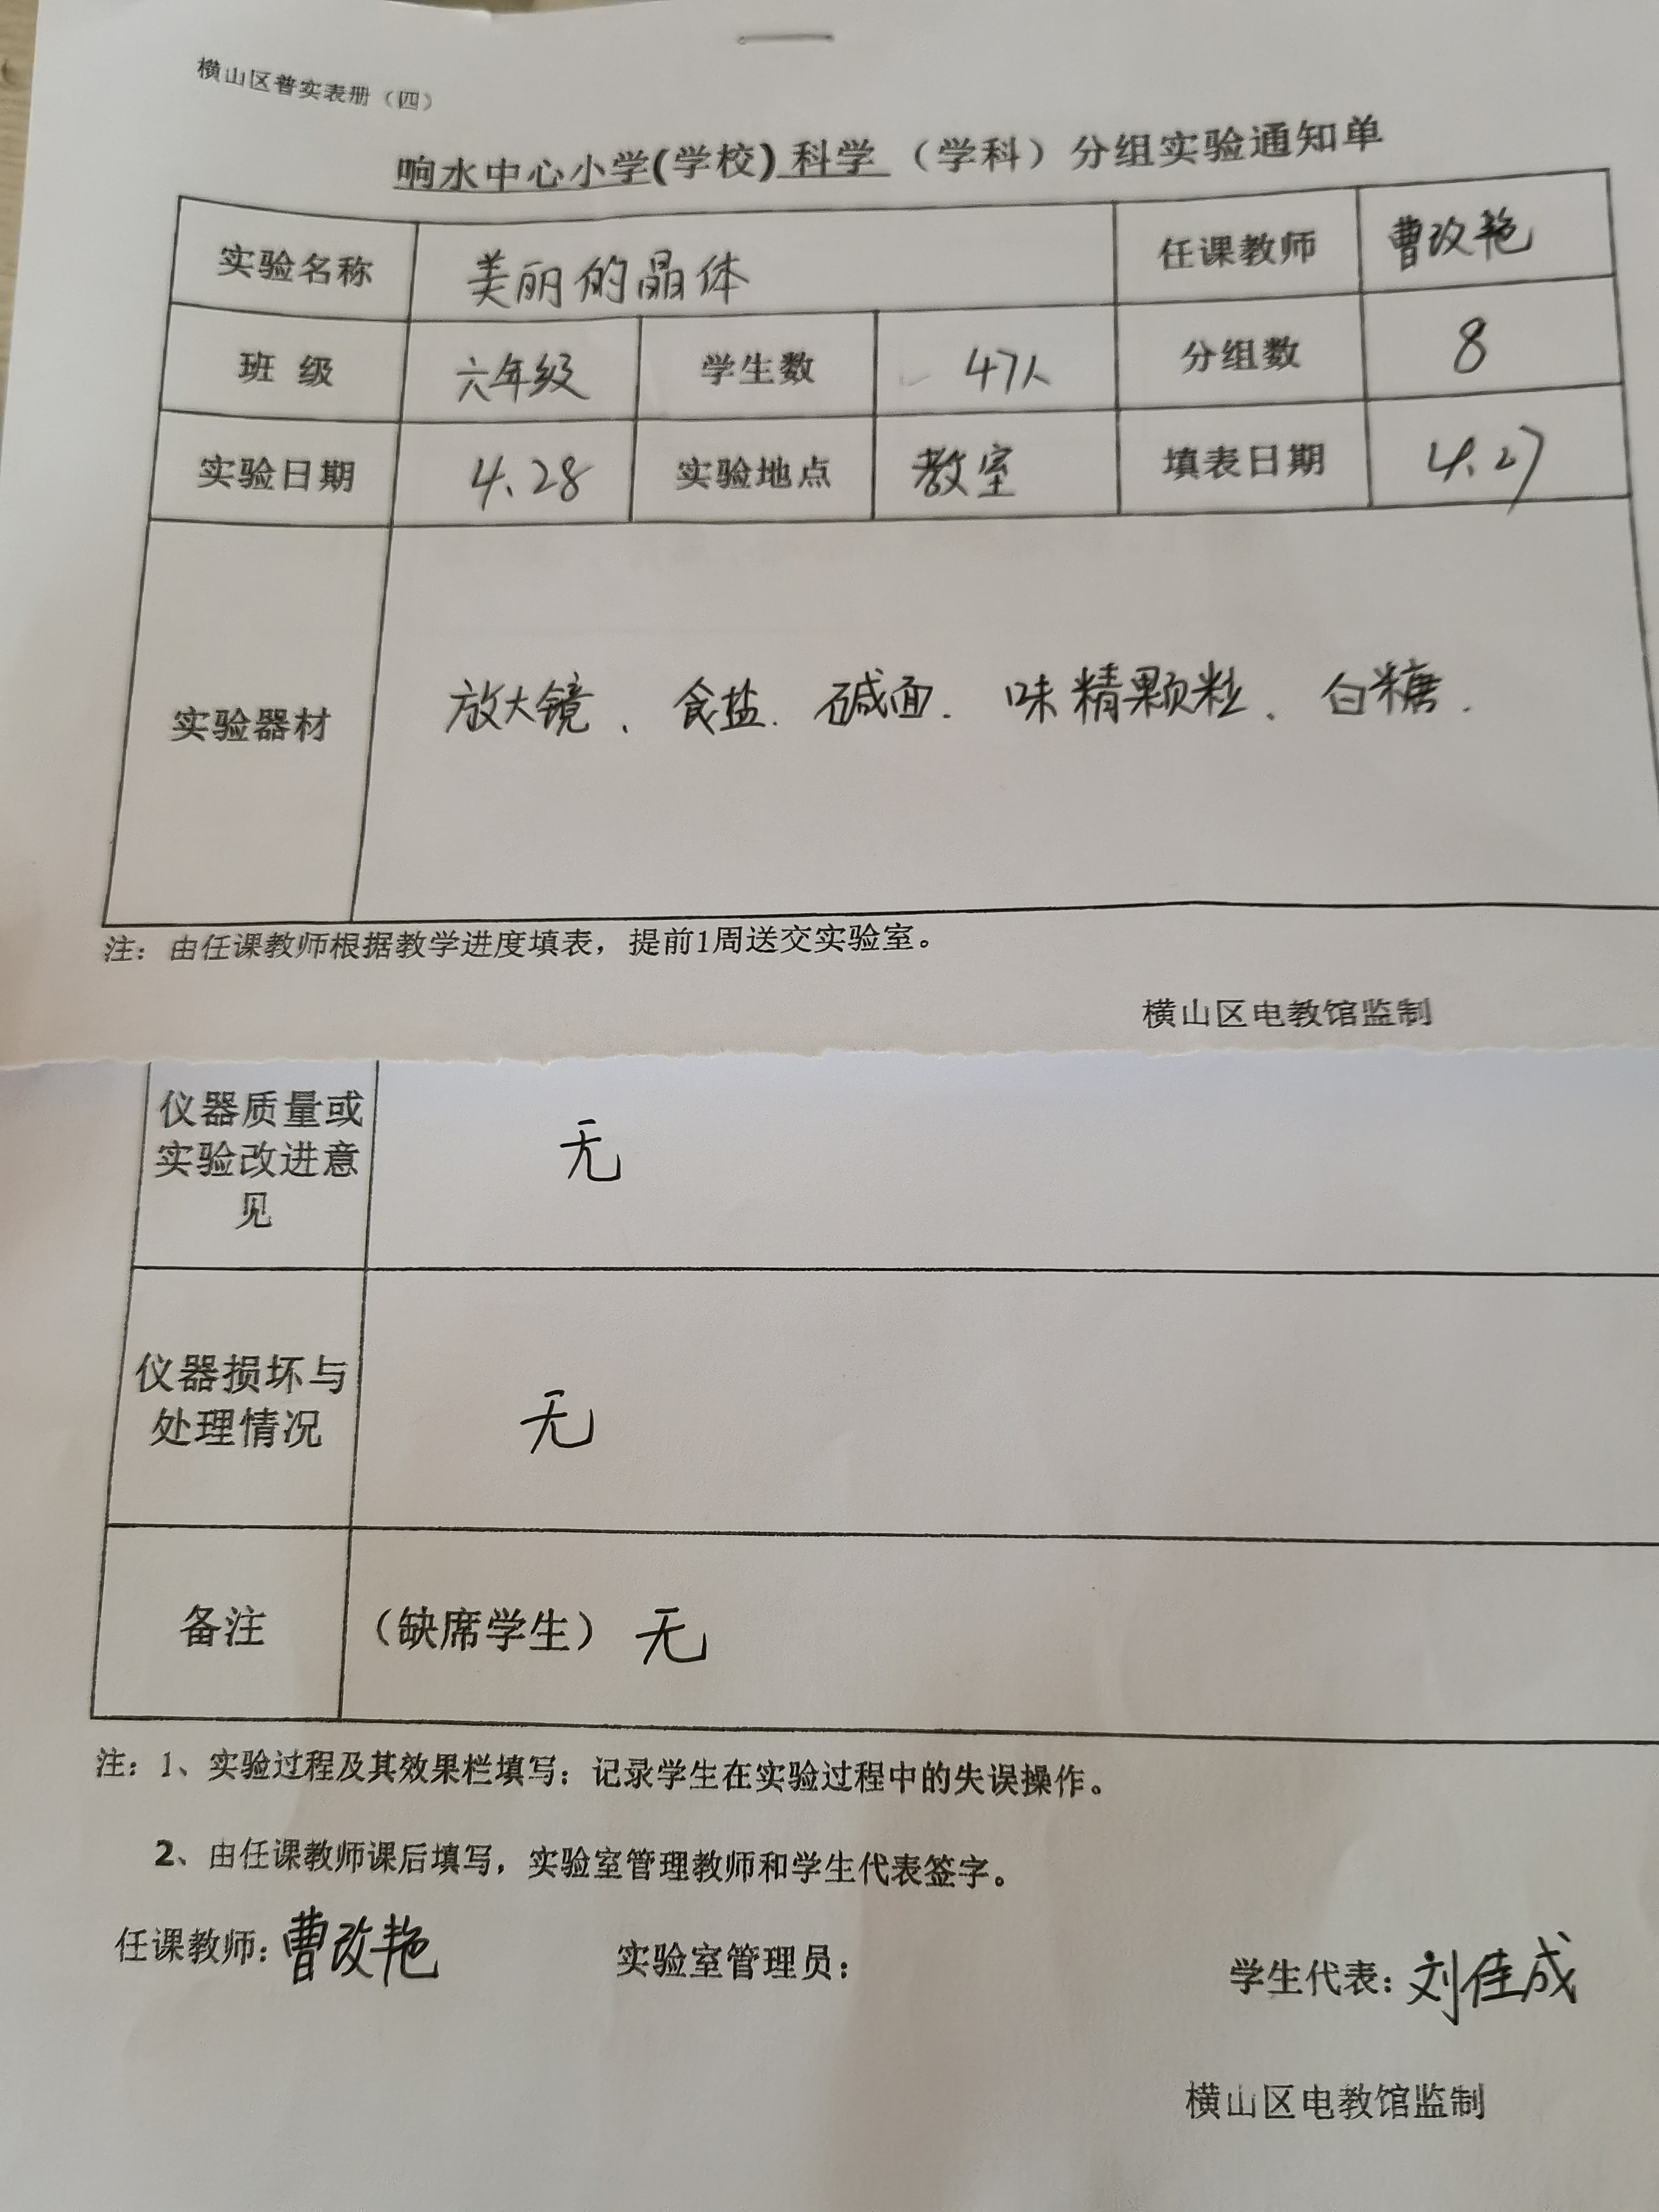 横山区普实表册（四）
响水中心小学(学校) 科学 （学科）分组实验通知单
实验名称 美丽的晶体 任课教师 曹改艳
班 级 六年级 学生数 47人 分组数 8
实验日期 4.28 实验地点 教室 填表日期 4.27
实验器材 放大镜、食盐、碱面、味精颗粒、白糖.
注：由任课教师根据教学进度填表，提前1周送交实验室。
横山区电教馆监制
仪器质量或
实验改进意 无
见
仪器损坏与
处理情况 无
备注 （缺席学生）无
注：1、实验过程及其效果栏填写：记录学生在实验过程中的失误操作。
2、由任课教师课后填写，实验室管理教师和学生代表签字。
任课教师：曹改艳 实验室管理员： 学生代表：刘佳成
横山区电教馆监制